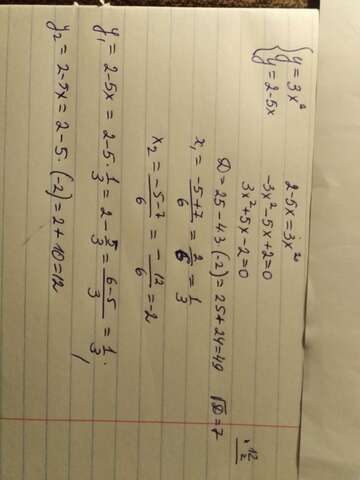 { y = 3x²
y = 2-5x
2-5x = 3x²
-3x²-5x+2=0
3x²+5x-2=0
D = 25-4·3·(-2) = 25+24=49 √D = 7
x₁ = (-5+7)/6 = 2/6 = 1/3
x₂ = (-5-7)/6 = -12/6 = -2
y₁ = 2-5x = 2-5·1/3 = 2-5/3 = (6-5)/3 = 1/3.
y₂ = 2-5x = 2-5·(-2) = 2+10=12